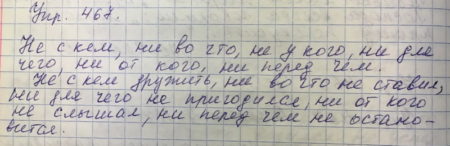 Упр. 467.
Не с кем, ни во что, не у кого, ни для
чего, ни от кого, ни перед чем.
Не с кем дружить, ни во что не ставил,
ни для чего не пригодился, ни от кого
не слышал, ни перед чем не остано-
вится.